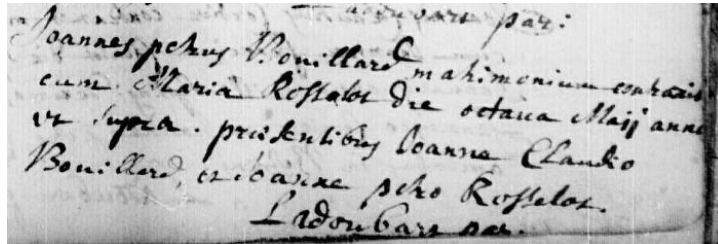 Ladoubart par:
Joannes petrus Bouillard matrimonium contraxit
cum Maria Rosselot die octava Maij anno
ut supra. præsentibus Joanne Claudio
Bouillard, et Joanne petro Rosselot.
Ladoubart par.